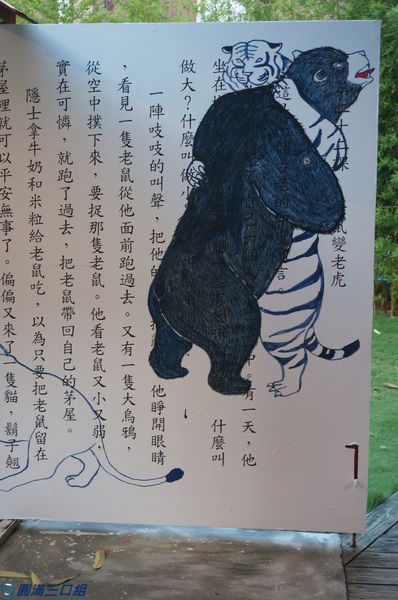 鼠變老虎
這
言。
中。有一天，他
坐在
什麼叫
做大？什麼叫做小
一陣吱吱的叫聲，把他的
他睜開眼睛
，看見一隻老鼠從他面前跑過去。又有一隻大烏鴉，
從空中撲下來，要捉那隻老鼠。他看老鼠又小又弱，
實在可憐，就跑了過去，把老鼠帶回自己的茅屋。
隱士拿牛奶和米粒給老鼠吃，以為只要把老鼠留在
茅屋裡就可以平安無事了。偏偏又來了一隻貓，鬍子翹
圓滿三口組